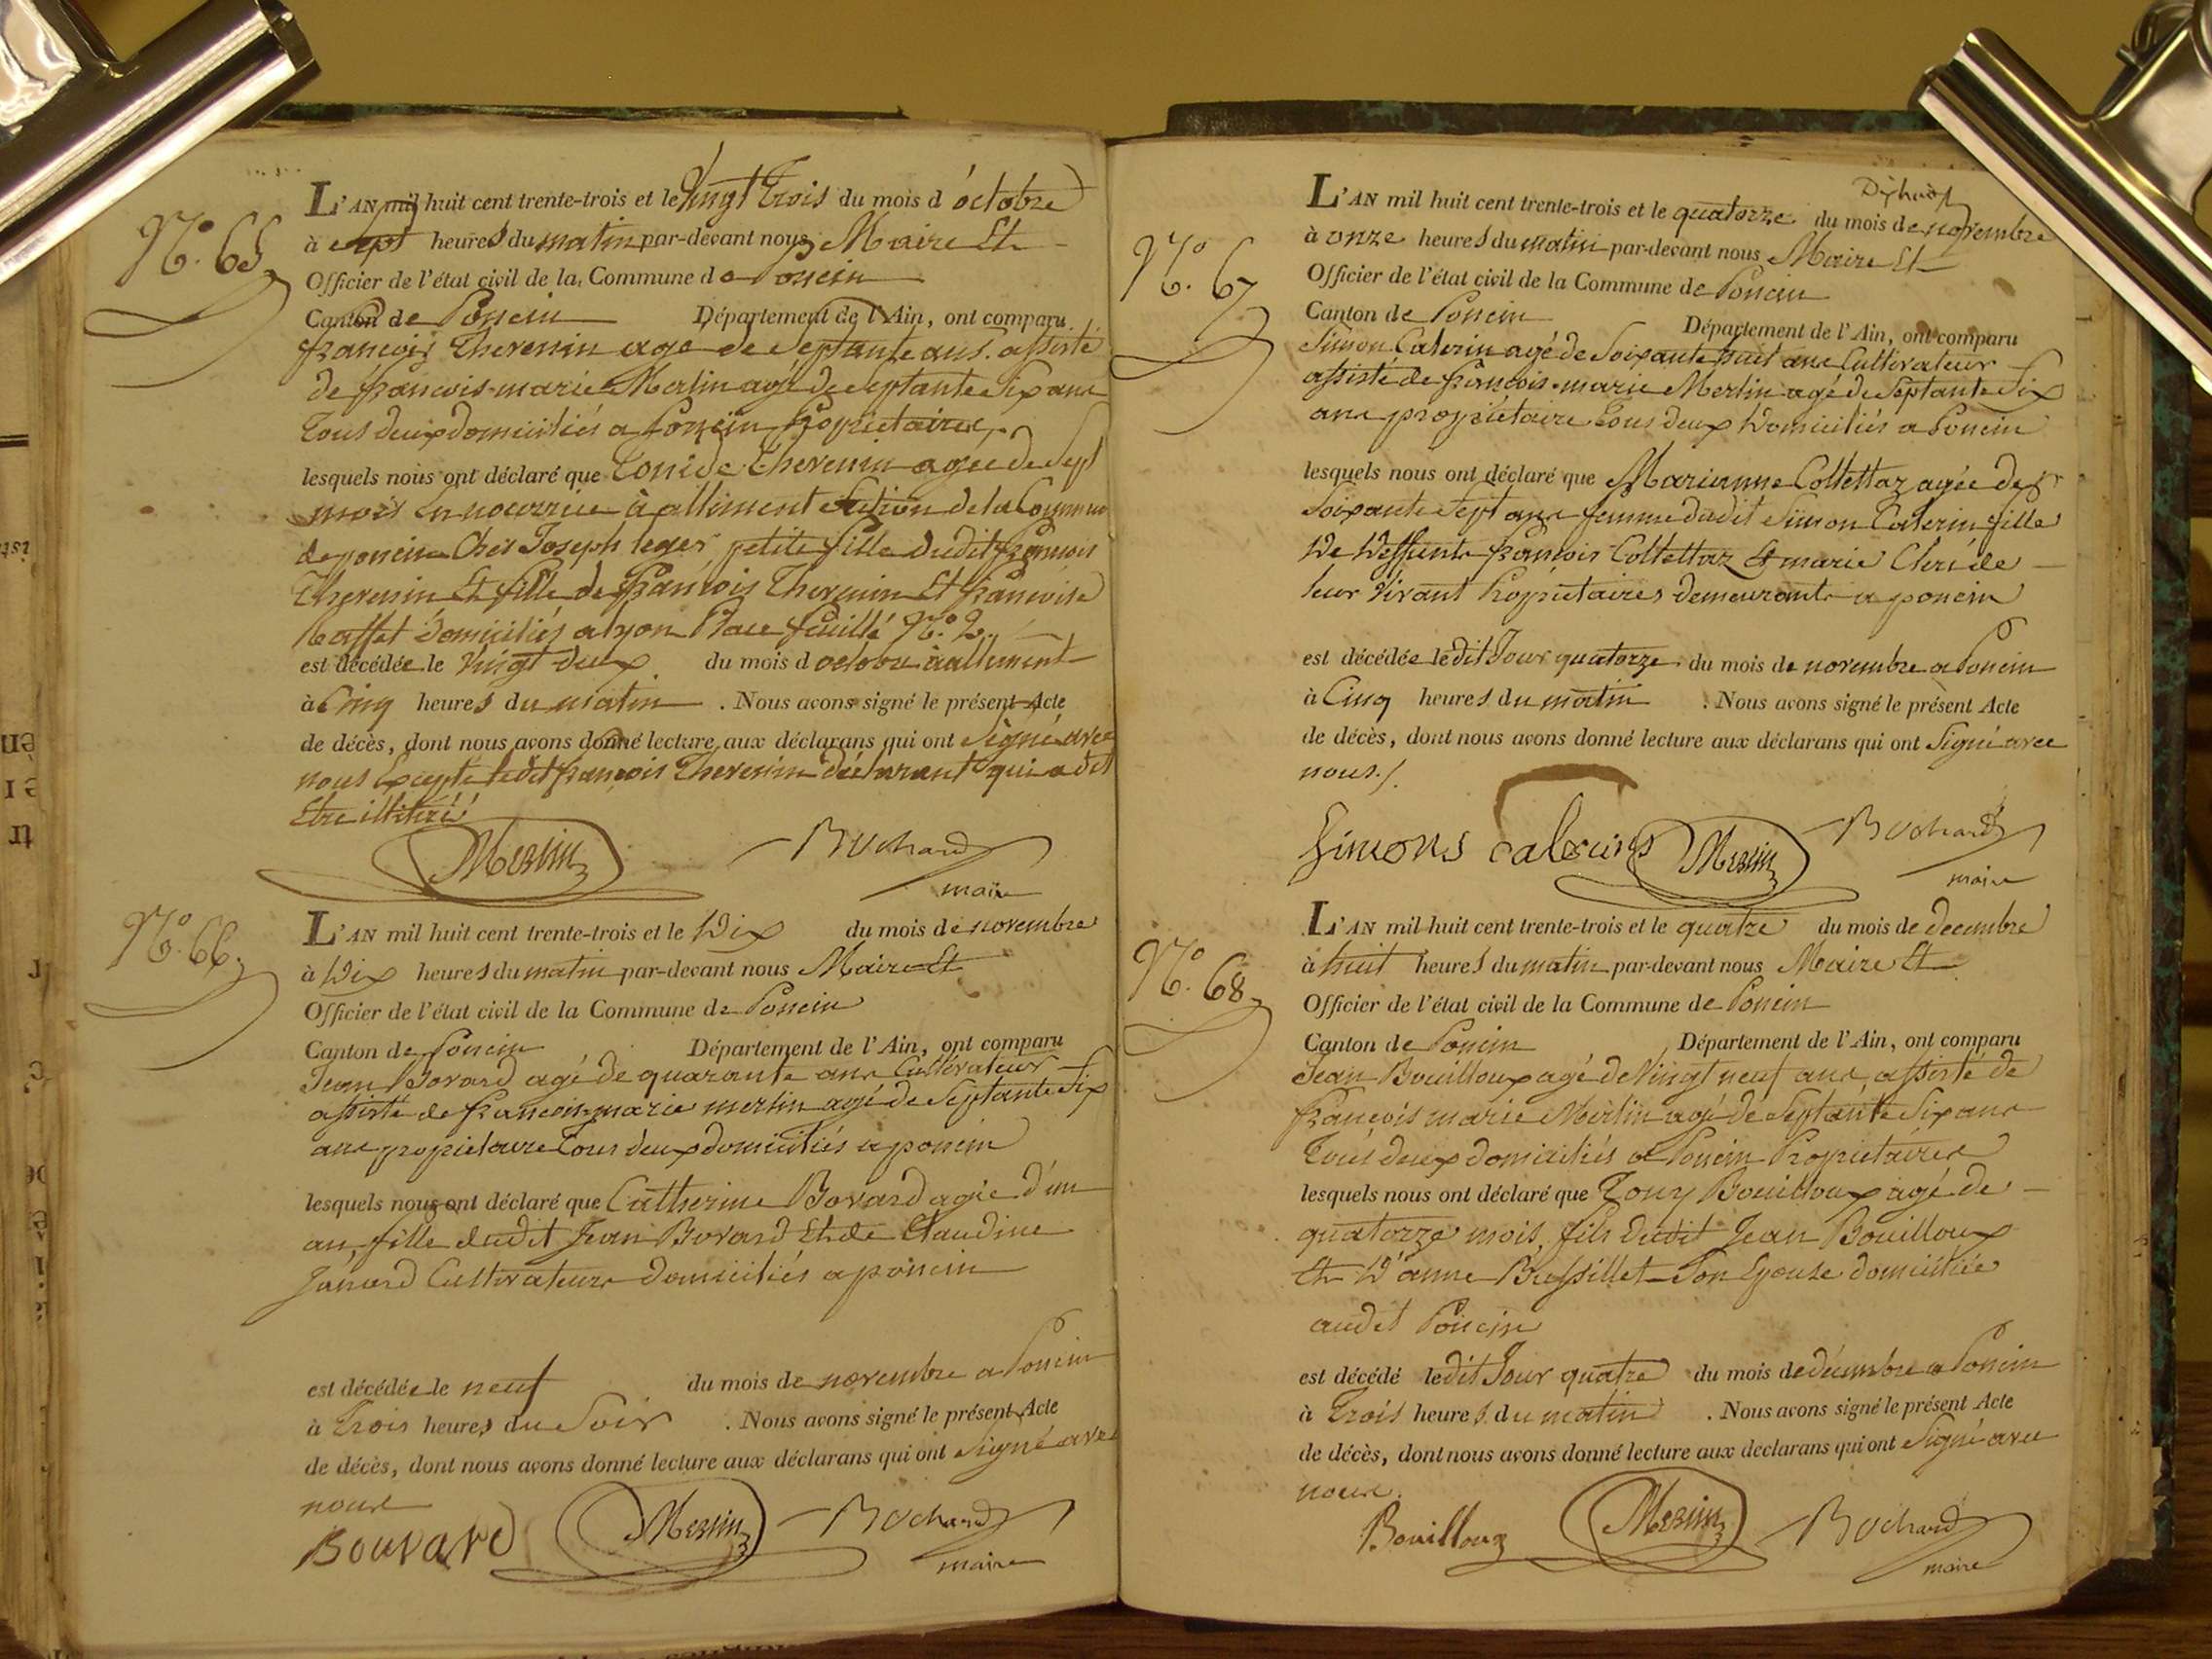 N.o 65
L'AN mil huit cent trente-trois et le vingt trois du mois d'octobre
à sept heures du matin par-devant nous Maire Et
Officier de l'état civil de la Commune de Poncin
Canton de Poncin Département de l'Ain, ont comparu
françois Thevenin agé de Septante ans. assisté
de françois-marie Merlin agé de Septante Six ans
tous deux domiciliés a Poncin Propriétaires.
lesquels nous ont déclaré que Thevenin agée de Sept
mois En nourrice à allement Section de la Commune
de poncin Chés Joseph leger petite fille dudit françois
Thevenin Et fille de françois Thevenin Et françoise
domiciliés a lyon Place feuillé N.o 2.
est décédée le vingt deux du mois d octobre à allement
à Cinq heures du matin . Nous avons signé le présent Acte
de décès, dont nous avons donné lecture aux déclarans qui ont Signé avec
nous Excepté ledit françois Thevenin déclarant qui a dit
Etre illitéré
Merlin Bochard
maire
N.o 66.
L'AN mil huit cent trente-trois et le Dix du mois de novembre
à Dix heures du matin par-devant nous Maire Et
Officier de l'état civil de la Commune de Poncin
Canton de Poncin Département de l'Ain, ont comparu
Jean Bovard agé de quarante ans Cultivateur
assisté de françois-marie merlin agé de Septante Six
ans propriétaire tous deux domiciliés a poncin
lesquels nous ont déclaré que Catherine Bovard agée d'un
an, fille dudit Jean Bovard Et de Claudine
Janard Cultivateurs domiciliés a poncin
est décédée le neuf du mois de novembre a Poncin
à Trois heures du Soir . Nous avons signé le présent Acte
de décès, dont nous avons donné lecture aux déclarans qui ont Signé avec
nous
Bouvard Merlin Bochard
maire
N.o 67
L'AN mil huit cent trente-trois et le quatorze du mois de novembre
à onze heures du matin par-devant nous Maire Et
Officier de l'état civil de la Commune de Poncin
Canton de Poncin Département de l'Ain, ont comparu
Simon Caterin agé de Soixante huit ans Cultivateur
assisté de françois-marie Merlin agé de Septante Six
ans propriétaire tous deux Domiciliés a Poncin
lesquels nous ont déclaré que Marianne Collettaz agée de
Soixante Sept ans femme dudit Simon Caterin fille
De Deffunts françois Collettaz Et marie
leur vivant Propriétaires demeurants a poncin
est décédée ledit Jour quatorze du mois de novembre a Poncin
à Cinq heures du matin . Nous avons signé le présent Acte
de décès, dont nous avons donné lecture aux déclarans qui ont Signé avec
nous./.
Simons Merlin Bochard
maire
N.o 68
L'AN mil huit cent trente-trois et le quatre du mois de decembre
à huit heures du matin par-devant nous Maire Et
Officier de l'état civil de la Commune de Poncin
Canton de Poncin Département de l'Ain, ont comparu
Jean Bouilloux agé de Vingt neuf ans, assisté de
françois marie Merlin agé de Septante Six ans
Tous deux domiciliés a Poncin Propriétaires
lesquels nous ont déclaré que Tony Bouilloux agé de
quatorze mois, fils dudit Jean Bouilloux
Et D'anne Bussillet Son Epouse domiciliée
audit Poncin
est décédé ledit Jour quatre du mois de décembre a Poncin
à Trois heures du matin . Nous avons signé le présent Acte
de décès, dont nous avons donné lecture aux déclarans qui ont Signé avec
nous.
Bouilloux Merlin Bochard
maire